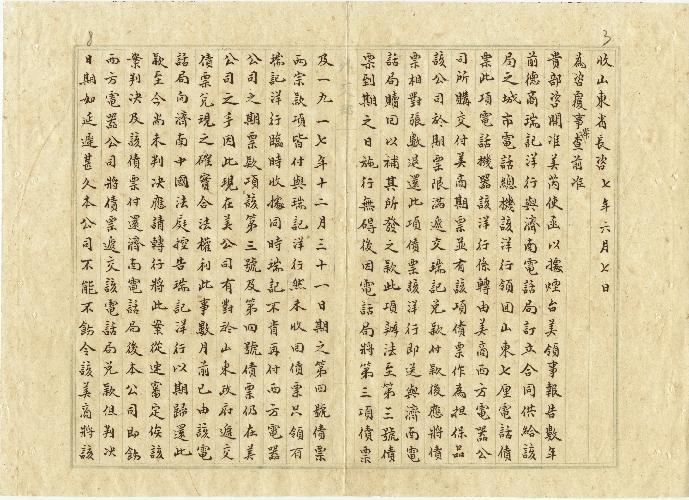 3
收山東省長咨 七年六月七日
為咨覆事案查前准
貴部咨開准美芮使函以據煙台美領事報告數年
前德商瑞記洋行與濟南電話局訂立合同供給該
局之城市電話總機該洋行領回山東七厘電話債
票此項電話機器該洋行係轉由美商西方電器公
司所購交付美商期票並有該項債票作為担保品
該公司於期票限滿遞交瑞記兌款付款後應將債
票相對張數退還此項債票該洋行即送與濟南電
話局贖回以補其所發之款此項辦法至第三號債
票到期之日施行無碍後因電話局將第三項債票
8
及一九一七年十二月三十一日期之第四號債票
兩宗款項皆付與瑞記洋行然未收回債票只領有
瑞記洋行臨時收據同時瑞記不肯再付西方電器
公司之期票款項該第三號及第四號債票仍在美
公司之手因此現在美公司有對於山東政府遞交
債票兌現之確實合法權利此事數月前已由該電
話局向濟南中國法庭控告瑞記洋行以期歸還此
款至今尚未判決應請轉行將此案從速審定俟該
案判決及該債票付還濟南電話局後本公司即飭
西方電器公司將債票遞交該電話局兌款但判決
日期如延遲甚久本公司不能不飭令該美商將該